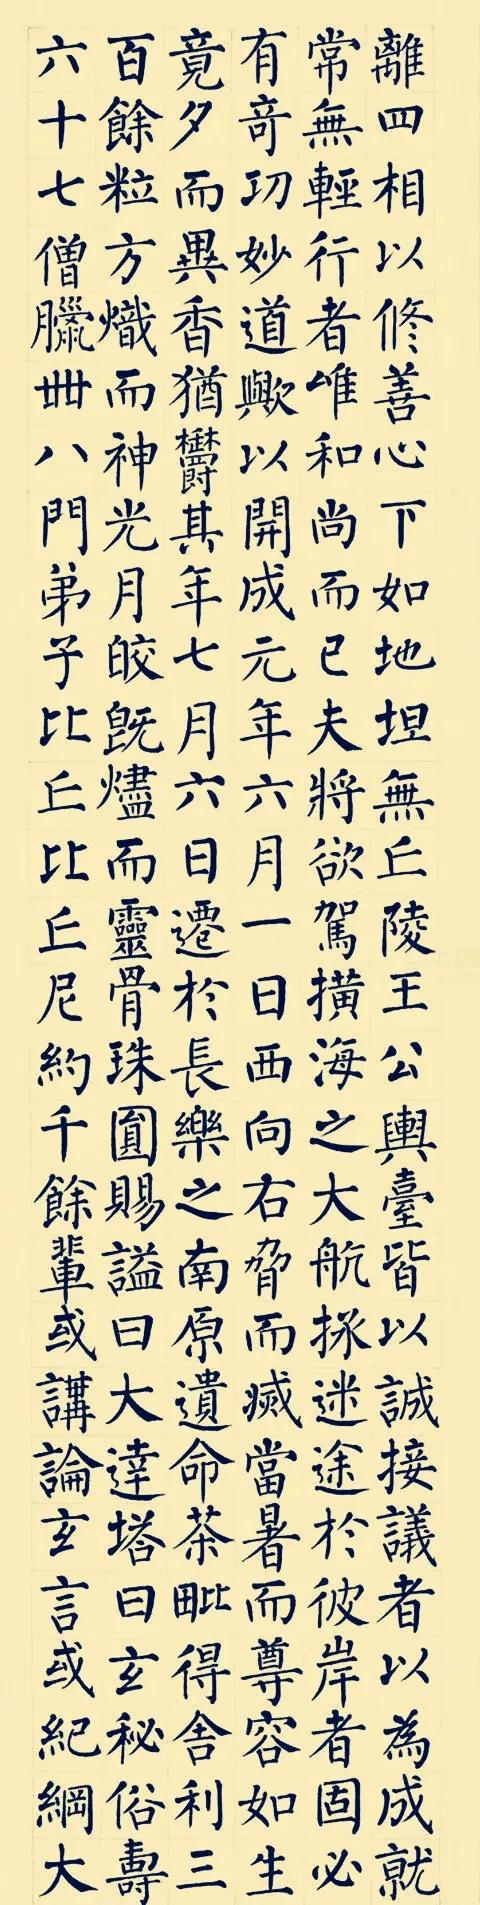 離四相以修善心下如地坦無丘陵王公輿臺皆以誠接議者以為成就
常無輕行者唯和尚而已夫將欲駕橫海之大航拯迷途於彼岸者固必
有奇功妙道歟以開成元年六月一日西向右脅而滅當暑而尊容如生
竟夕而異香猶鬱其年七月六日遷於長樂之南原遺命茶毗得舍利三
百餘粒方熾而神光月皎既燼而靈骨珠圓賜謚曰大達塔曰玄秘俗壽
六十七僧臘卌八門弟子比丘比丘尼約千餘輩或講論玄言或紀綱大